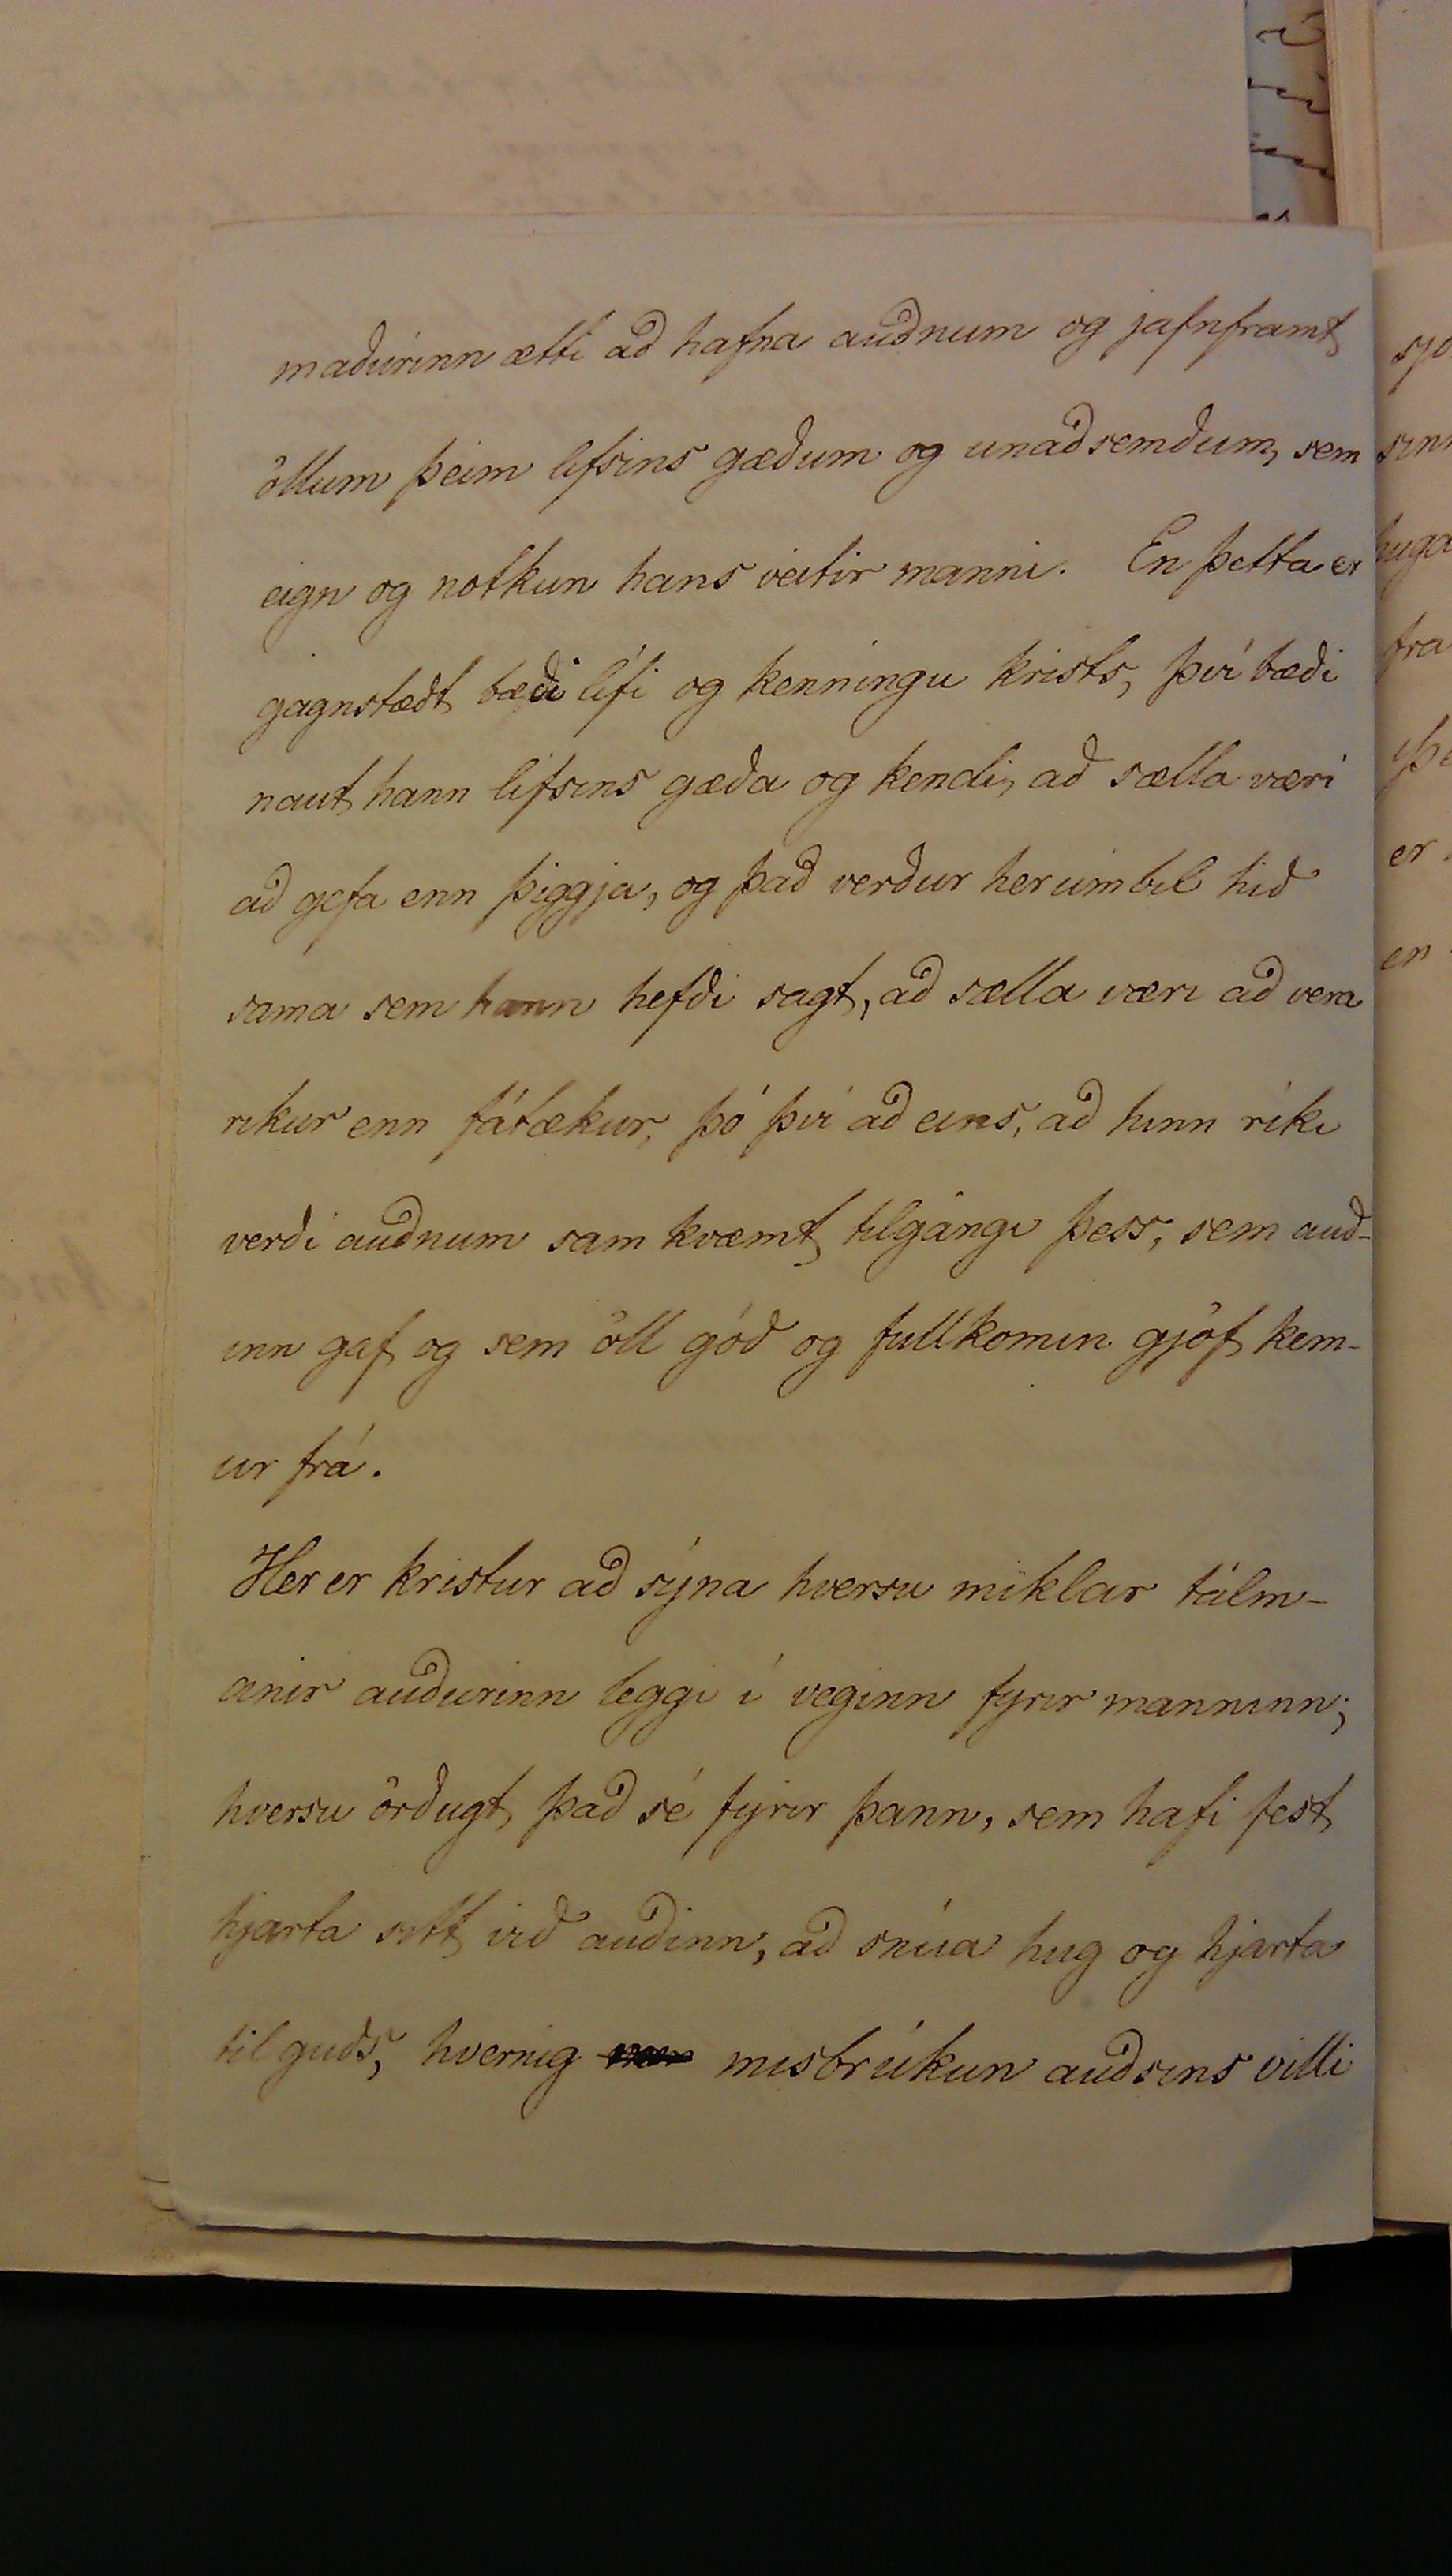 maðurinn ætti að hafna auðnum og jafnframt
öllum þeim lífsins gæðum og unaðsemdum, sem
eign og notkun hans veitir manni. En þetta er
gagnstædt bæði lífi og kenningu krists, því bæði
naut hann lífsins gæða og kendi, að sælla væri
að gefa enn þiggja, og það verður herumbil hið
sama sem hann hefði sagt, að sælla væri að vera
rikur enn fátækur, þó því að eins, að hinn ríki
verði auðnum sam kvæmt tilgángi þess, sem auð-
inn gaf og sem öll góð og fullkomin gjöf kem-
ur frá.
Her er kristur að sýna hversu miklar tálm-
anir auðurinn leggi í veginn fyrir manninn;
hversu örðugt það sé fyrir þann, sem hafi fest
hjarta sitt við auðinn, að snúa hug og hjarta
til guðs, hvernig misbrúkun auðsins villi